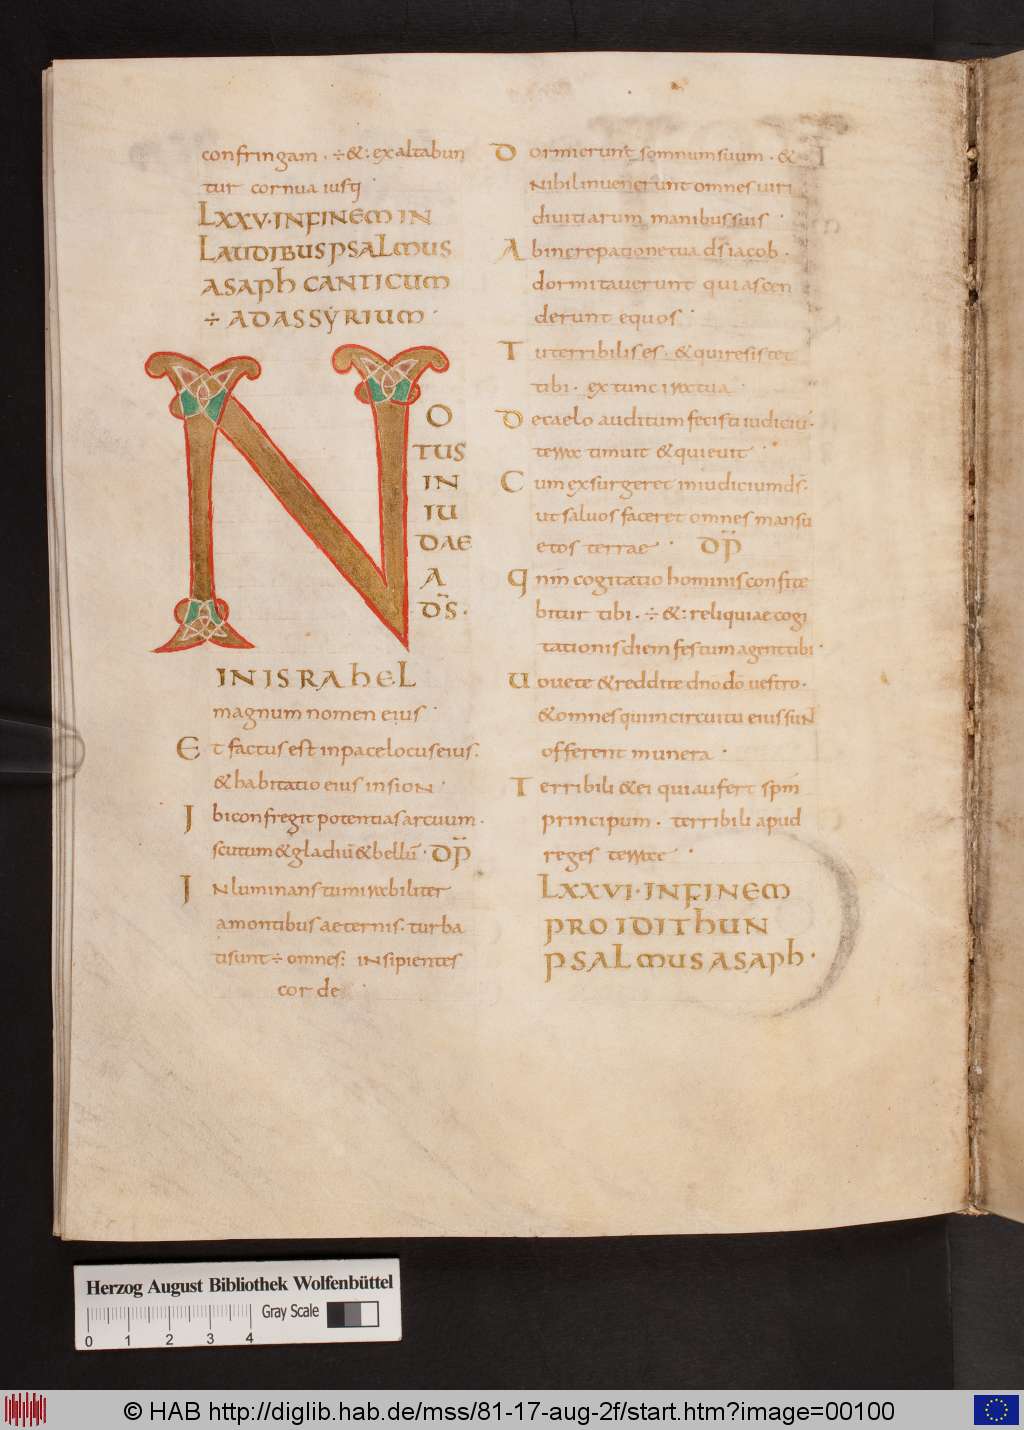 confringam · ÷ &: exaltabun
tur cornua iusti
LXXV · IN FINEM IN
LAUDIBUS PSALMUS
ASAPH CANTICUM
÷ AD ASSYRIUM ·
N
O
TUS
IN
IU
DAE
A
DS̄ ·
IN ISRAHEL
magnum nomen eius ·
Et factus est in pace locus eius :
& habitatio eius in sion ·
Ibi confregit potentias arcuum ·
scutum & gladiū & bellū · DP̄
Inluminans tu mirabiliter
a montibus aeternis · turba
ti sunt ÷ omnes: insipientes
corde ·
Dormierunt somnum suum · &
nihil invenerunt omnes viri
divitiarum manibus suis ·
Ab increpatione tua ds̄ iacob ·
dormitaverunt qui ascen
derunt equos ·
Tu terribilis es · & qui resistet
tibi · ex tunc ira tua ·
De caelo auditum fecisti iudiciū ·
terra timuit & quievit ·
Cum exsurgeret in iudicium ds̄ ·
ut salvos faceret omnes mansu
etos terrae · DP̄
Qnm̄ cogitatio hominis confite
bitur tibi · ÷ &: reliquiae cogi
tationis diem festum agent tibi ·
Uovete & reddite dno dō vestro ·
& omnes qui in circuitu eius sun
offerent munera ·
Terribili & ei qui aufert spm̄
principum · terribili apud
reges terrae ·
LXXVI · IN FINEM
PRO IDITHUN
PSALMUS ASAPH ·
Herzog August Bibliothek Wolfenbüttel
Gray Scale
0 1 2 3 4
© HAB http://diglib.hab.de/mss/81-17-aug-2f/start.htm?image=00100